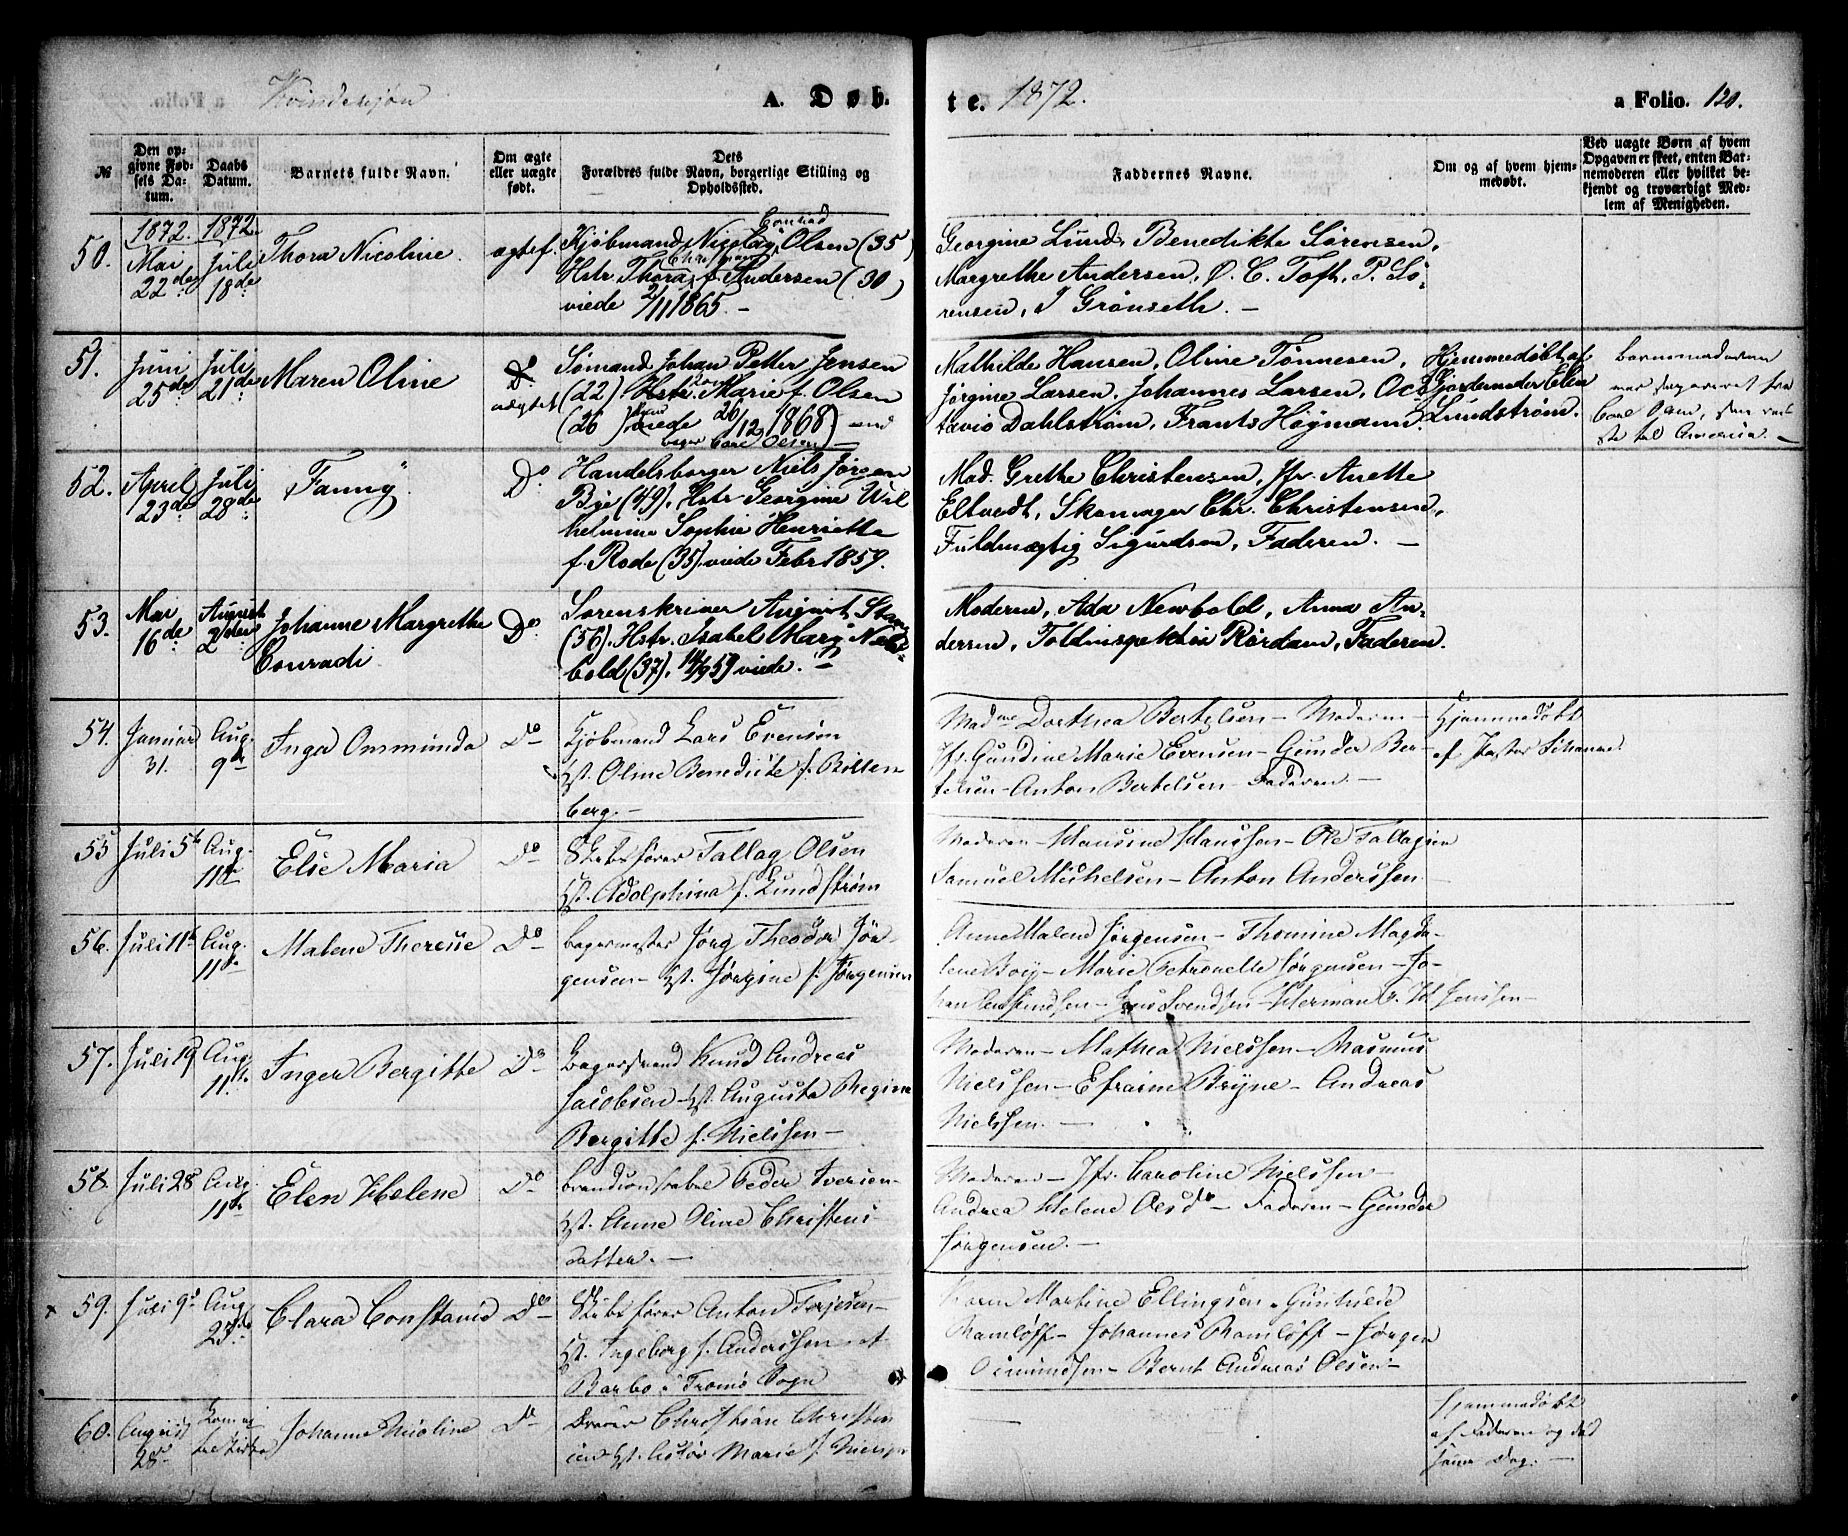 Kvindekjøn A. Døb te. 1872. a Folio. 120.
№
Den opgivne Fødsels Datum.
Daabs Datum.
Barnets fulde Navn.
Om ægte eller uægte født.
Dets Forældres fulde Navn, borgerlige Stilling og Opholdssted.
Faddernes Navne.
Om og af hvem hjemmedøbt.
Ved uægte Børn af hvem Opgaven er skeet, enten Barnemoderen eller hvilket bekjendt og troværdigt Medlem af Menigheden.
50.
1872. Mai 22de
1872. Juli 18de
Thora Nicoline
ægtef.
Conrad
Kjøbmand Nicolay Olsen (35)
Hstr. Thora f. Andersen (30)
viede 2/11 1865. –
Georgine Lund, Benedikte Sørensen,
Margrethe Andersen, O. C. Toft, P. Sø-
rensen, J Grønseth. –
51.
Juni 25de
Juli 21de
Maren Oline
Do uægtef
Sømand Johan Petter Jensen
(22) Hstr. Marie f. Olsen
(26) viede 26/12 1868) med
Carl Olsen –
Mathilde Hansen, Oline Tønnesen,
Jørgine Larsen, Johannes Larsen, Oc-
tavio Dahlstrøm, Frants Högmann.
Hjemmedøbt af
Gjordemoder Ellen
Lundstrøm.
barnemoderen
var separeret fra
Carl Olsen, som reis-
te til America. –
52.
April 23de
Juli 28de
Fanny
Do
Handelsborger Niels Jørgen
Bye (49). Hstr Georgine Wil
helmine Sophie Henriette
f. Rode (35) viede Febr 1859.
Mad. Grethe Christensen, Jfr. Anette
Eltvedt, Skomager Chr. Christensen,
Fuldmægtig Sigurdsen, Faderen. –
53.
Mai 16de
August 2den
Johanne Margrethe
Conradi
Do
Sorenskriver August Stang
(56). Hstr. Isabel Mary New-
bold (37). 14/9 59 viede.
Moderen, Ada Newbold, Anna An-
dersen, Toldinspektør Rørdam, Faderen.
54.
Januar 31.
Aug. 9de
Inga Osmunda
Do
Kjøbmand Lars Evensen
Hst. Oline Benedicte f. Bitten
berg. –
Madme Dorthea Bertelsen – Moderen –
Jfr. Gundine Marie Evensen – Gunder Ber-
telsen – Anton Bertelsen – Faderen. –
Hjemmedøbt
af Pastor
55
Juli 5te
Aug. 11te
Else Maria
Do
Skibsfører Tallag Olsen
Hst. Adolphina f. Lundstrøm
Moderen – Hansine Hanssen – Ole Tallagsen
Samuel Michelsen – Anton Anderssen
56.
Juli 11te
Aug. 11te
Malene Therese
Do
Bagermester Jørg Theodor Jör-
gensen – Hst. Jørgine f. Jørgensen
Anne Malene Jørgensen – Thomine Magda-
lene Boij – Marie Petronelle Jørgensen – Jo-
Jens Svendsen – Herman Jenssen –
57.
Juli 19
Aug. 11te
Inger Bergitte
Do
Bagersvend Knud Andreas
Jacobsen – Hst. Augusta Regine
Bergitte f. Nielssen –
Moderen – Mathea Nielssen – Rasmus
Nielssen – Efraine Bryne – Andreas
Nielssen. –
58.
Juli 28
Aug. 11te
Elen Helene
Do
Brandconstabel Peder Iversen –
Hst. Anne Oline Christens-
datter. –
Moderen – Jfr. Caroline Nielssen
Andrea Helene Olsdr – Faderen – Gunder
Jørgensen. –
× 59.
Juli 9de
Aug. 25de
Clara Constance
Do
Skibsfører Anton Torjesen –
Hst. Ingeborg f. Anderssen – af
Barbo i Tromø Sogn
Karen Martine Ellingsen – Gunhilde
Ramløff – Johannes Ramløff – Jørgen
Osmundsen – Bernt Andreas Olsen –
60.
August 28de
Johanne Nicoline
Do
Christian Christen
sen Hst. Marie f. Nielssen
Hjemmedøbt
af Faderen og død
samme Dag. –